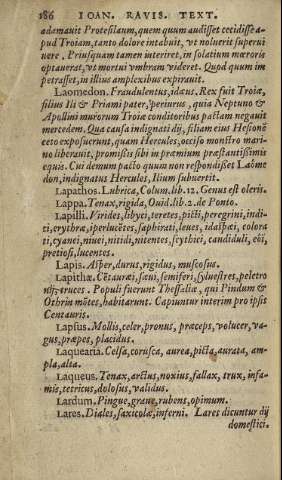 186 IOAN. RAVIS. TEXT.
adamauit Protesilaum, quem quum audisset cecidisse a-
pud Troiam, tanto dolore intabuit, vt noluerit superui
uere. Priusquam tamen interiret, in solatium mœroris
optauerat, vt mortui vmbram videret. Quod quum im
petrasset, in illius amplexibus expirauit.
Laomedon. Fraudulentus, idæus. Rex fuit Troiæ,
filius Ili & Priami pater, periurus, quia Neptuno &
Apollini murorum Troiæ conditoribus pactam negauit
mercedem. Qua causa indignati dij, filiam eius Hesionē
ceto exposuerunt, quam Hercules, occiso monstro mari-
no liberauit, promissis sibi in præmium præstantissimis
equis. Cui demum pacto quum non respondisset Laome
don, indignatus Hercules, Ilium subuertit.
Lapathos. Lubrica, Colum. lib. 12. Genus est oleris.
Lappa. Tenax, rigida, Ouid. lib. 2. de Ponto.
Lapilli. Virides, libyci, teretes, picti, peregrini, indi-
ti, erythræi, perlucētes, saphirati, leues, idaspæi, colora
ti, cyanei, niuei, nitidi, nitentes, scythici, candidi, eoi,
pretiosi, lucentes.
Lapis. Asper, durus, rigidus, muscosus.
Lapithæ. Cētauræi, sæui, semiferi, syluestres, peletro
nij, truces. Populi fuerunt Thessaliæ, qui Pindum &
Othrin mōtes, habitarunt. Capiuntur interim pro ipsis
Centauris.
Lapsus. Mollis, celer, pronus, præceps, volucer, va-
gus, præpes, placidus.
Laquearia. Celsa, corusca, aurea, picta, aurata, am-
pla, alta.
Laqueus. Tenax, arctus, noxius, fallax, trux, infa-
mis, tetricus, dolosus, validus.
Lardum. Pingue, graue, rubens, opimum.
Lares. Diales, saxicolæ, inferni. Lares dicuntur dij
domestici.